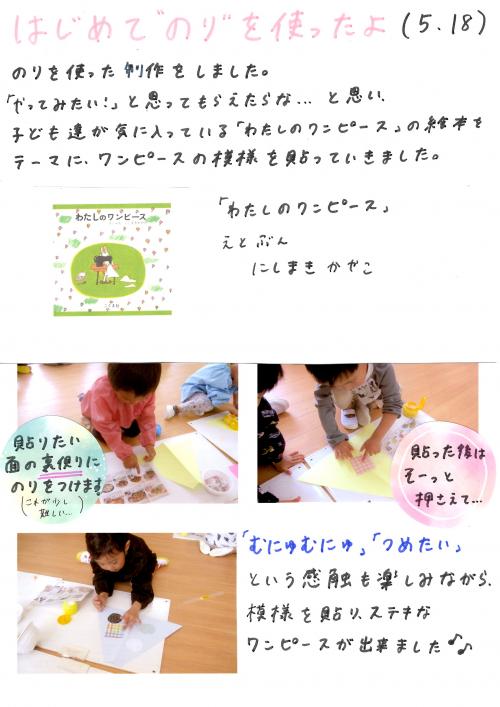 はじめて"のり"を使ったよ (5.18)
のりを使った制作をしました。
「やってみたい!」と思ってもらえたらな…と思い、
子ども達が気に入っている「わたしのワンピース」の絵本を
テーマに、ワンピースの模様を貼っていきました。
わたしのワンピース
こぐま社
「わたしのワンピース」
えとぶん
にしまきかやこ
貼りたい
面の裏側に
のりをつけます
(これが少し
難しい…)
貼った後は
そーっと
押さえて…
「むにゅむにゅ」「つめたい」
という感触も楽しみながら、
模様を貼り、ステキな
ワンピースが出来ました♪♪